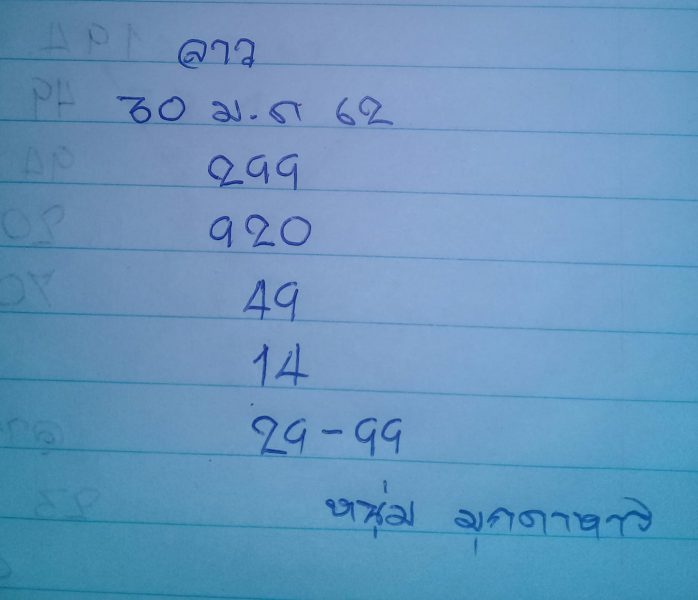 ลาว
30 ม.ค 62
299
920
49
14
29-99
หนุ่ม มุกดาหาร